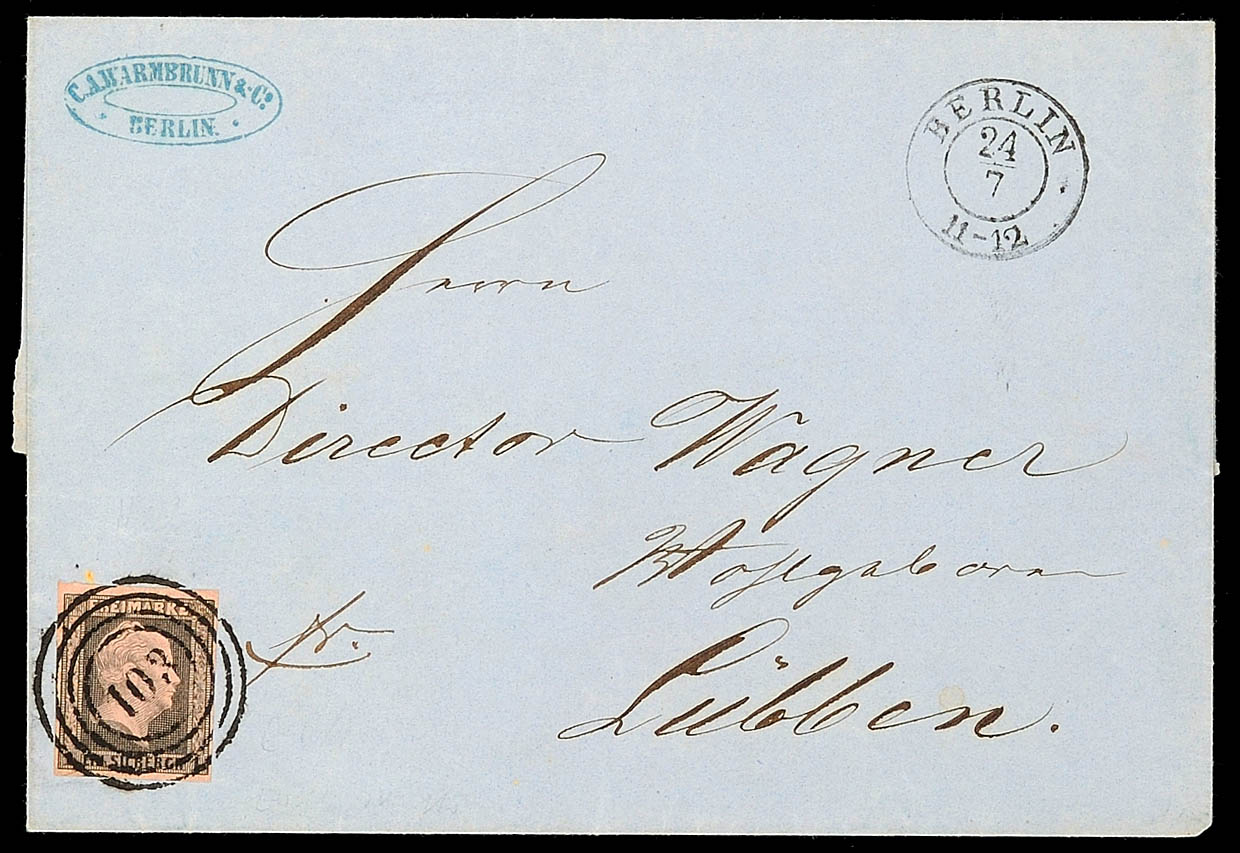 C. A. WARMBRUNN & Co.
BERLIN.
BERLIN
24
7
11-12
Herrn
Director Wagner
Wohlgeboren
Lübben.
fr.
FREIMARKE
102
EIN SILBERGR.